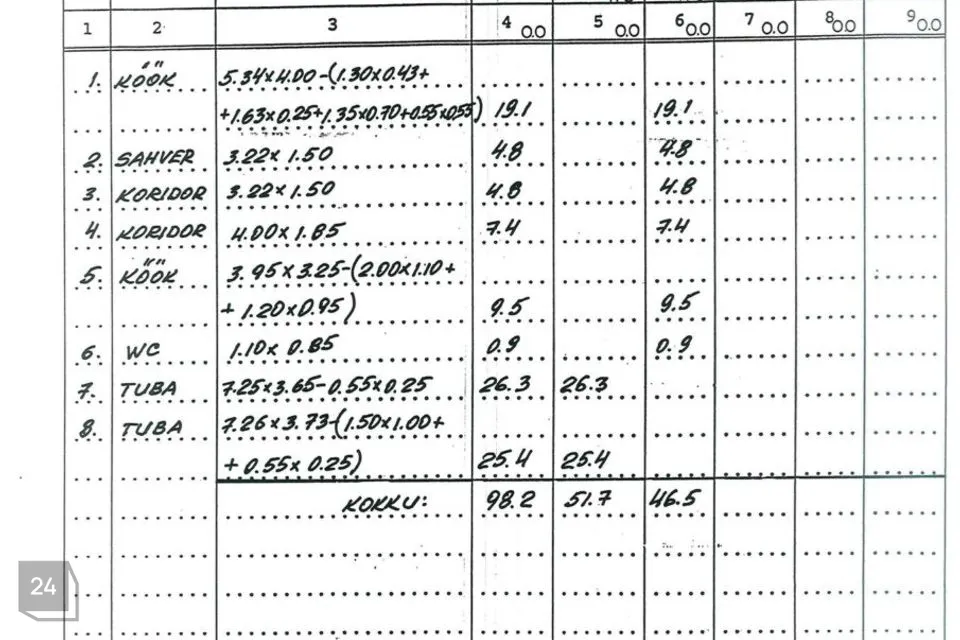 1 2 3 4 0.0 5 0.0 6 0.0 7 0.0 8 0.0 9 0.0
1. KÖÖK 5.34x4.00-(1.30x0.43+
+1.63x0.25+1.35x0.70+0.55x0.55) 19.1 19.1
2. SAHVER 3.22x1.50 4.8 4.8
3. KORIDOR 3.22x1.50 4.8 4.8
4. KORIDOR 4.00x1.85 7.4 7.4
5. KÖÖK 3.95x3.25-(2.00x1.10+
+1.20x0.95) 9.5 9.5
6. WC 1.10x0.85 0.9 0.9
7. TUBA 7.25x3.65-0.55x0.25 26.3 26.3
8. TUBA 7.26x3.73-(1.50x1.00+
+0.55x0.25) 25.4 25.4
KOKKU: 98.2 51.7 46.5
24